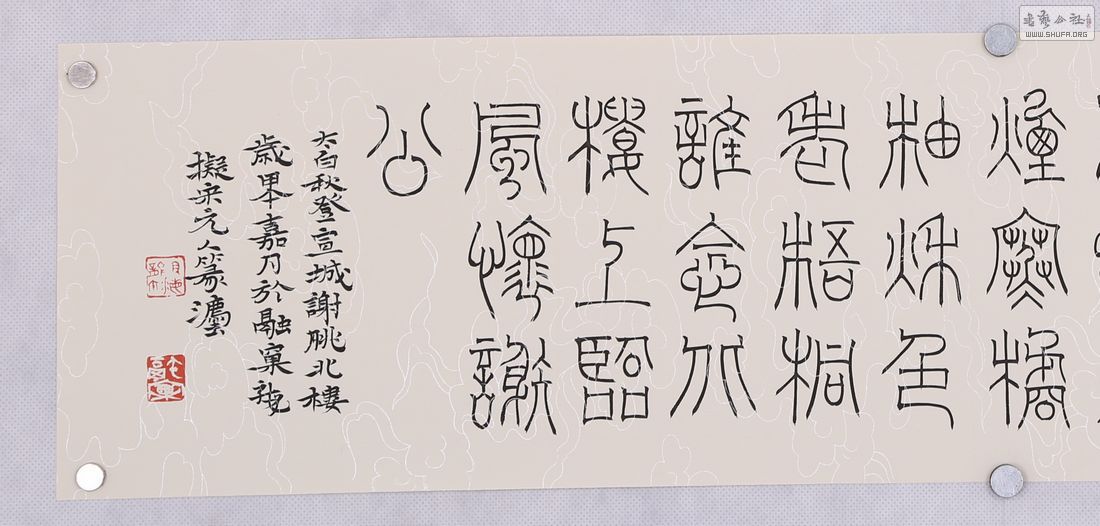 煙寒橘
柚秋色
老梧桐
誰念北
樓上臨
風懷謝
公
太白秋登宣城謝朓北樓
歲嘉月於融窠
擬宋元人篆灋
书艺公社
WWW.SHUFA.ORG